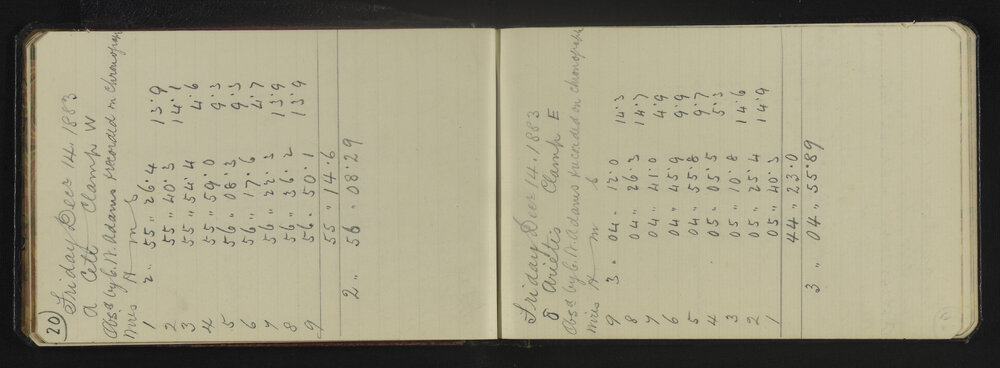 20
Friday Decr 14. 1883
α Ceti Clamp W
Obsd by C. W. Adams recorded on chronograph
Wires H m s
1 2 " 55 " 26.4 13.9
2 55 " 40.3 14.1
3 55 " 54.4 4.6
4 55 " 59.0 9.3
5 56 " 08.3 9.3
6 56 " 17.6 4.7
7 56 " 22.3 13.9
8 56 " 36.2 13.9
9 56 . 50.1
55 " 14.6
2 " 56 " 08.29
Friday Decr 14. 1883
δ Arietis Clamp E
Obsd by C. W. Adams recorded on chronograph
Wires H m s
9 3 " 04 " 12.0 14.3
8 04 " 26.3 14.7
7 04 " 41.0 4.9
6 04 " 45.9 9.9
5 04 " 55.8 9.7
4 05 " 05.5 5.3
3 05 " 10.8 14.6
2 05 " 25.4 14.9
1 05 " 40.3
44 " 23.0
3 " 04 " 55.89